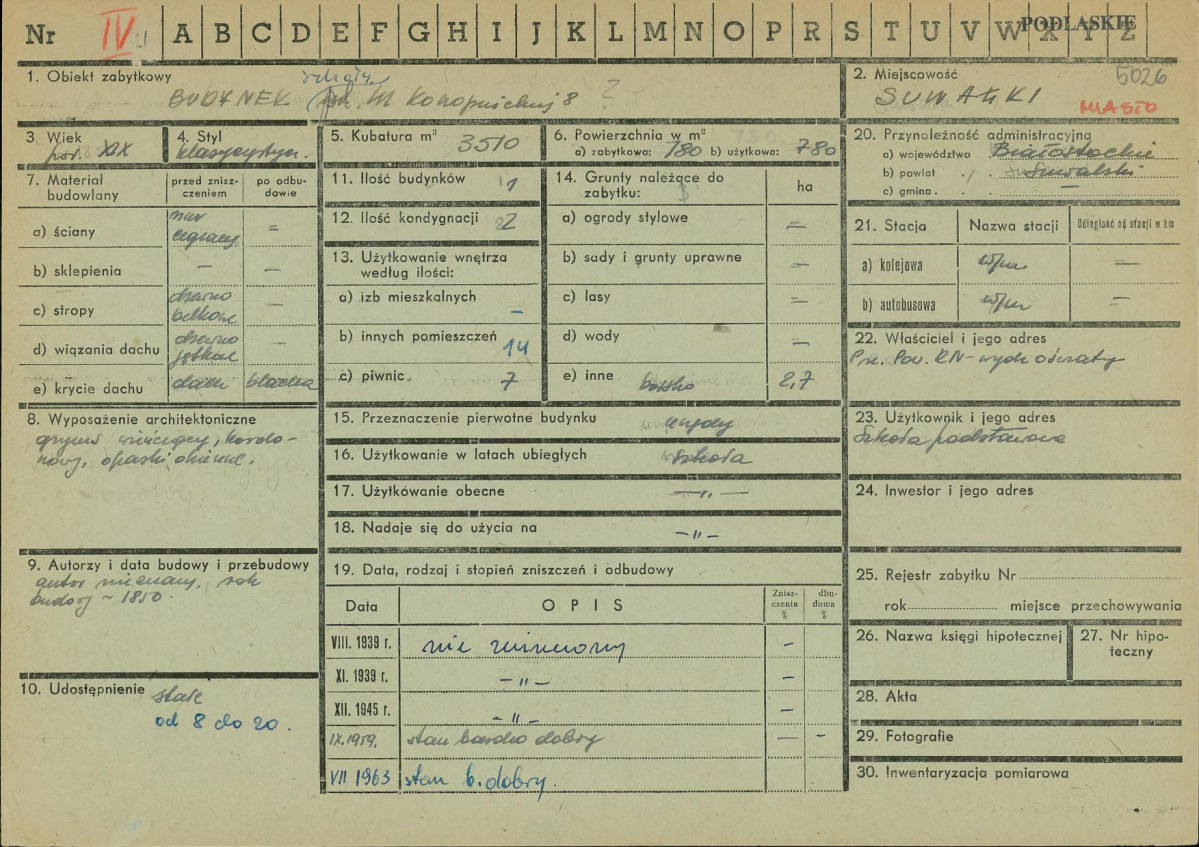 Nr IV A B C D E F G H I J K L M N O P R S T U V W X Y Z PODLASKIE
1. Obiekt zabytkowy
szkoły
BUDYNEK M Konopnickiej 8 ?
2. Miejscowość 5026
SUWAŁKI MIASTO
3. Wiek
poł. XIX
4. Styl
klasycystycz.
5. Kubatura m³ 3510
6. Powierzchnia w m²
a) zabytkowa: 780 b) użytkowa: 780
7. Materiał budowlany
przed zniszczeniem
po odbudowie
a) ściany mur ceglany =
b) sklepienia — —
c) stropy drewno belkowe —
d) wiązania dachu drewno jętkowe —
e) krycie dachu blacha
8. Wyposażenie architektoniczne
gzyms wieńczący, kordo-
nowy, opaski okienne.
9. Autorzy i data budowy i przebudowy
autor nieznany, rok
budowy ~ 1850.
10. Udostępnienie stałe
od 8 do 20.
11. Ilość budynków 1
12. Ilość kondygnacji 2
13. Użytkowanie wnętrza
według ilości:
a) izb mieszkalnych —
b) innych pomieszczeń 14
c) piwnic 7
14. Grunty należące do
zabytku:
ha
a) ogrody stylowe =
b) sady i grunty uprawne —
c) lasy =
d) wody —
e) inne boisko 2,7
15. Przeznaczenie pierwotne budynku
16. Użytkowanie w latach ubiegłych szkoła
17. Użytkowanie obecne — „ —
18. Nadaje się do użycia na — „ —
19. Data, rodzaj i stopień zniszczeń i odbudowy
Data OPIS Zniszczenia % dbudowa %
VIII. 1939 r. nie zniszczony —
XI. 1939 r. — „ — —
XII. 1945 r. — „ — —
IX.1959. stan bardzo dobry — -
VII 1963 stan b. dobry.
20. Przynależność administracyjna
a) województwo Białostockie
b) powiat Suwalski
c) gmina
21. Stacja Nazwa stacji Odległość od stacji w km
a) kolejowa w/m —
b) autobusowa w/m =
22. Właściciel i jego adres
Prez. Pow. RN - wydz oświaty
23. Użytkownik i jego adres
Szkoła podstawowa
24. Inwestor i jego adres
25. Rejestr zabytku Nr
rok miejsce przechowywania
26. Nazwa księgi hipotecznej
27. Nr hipo-
teczny
28. Akta
29. Fotografie
30. Inwentaryzacja pomiarowa